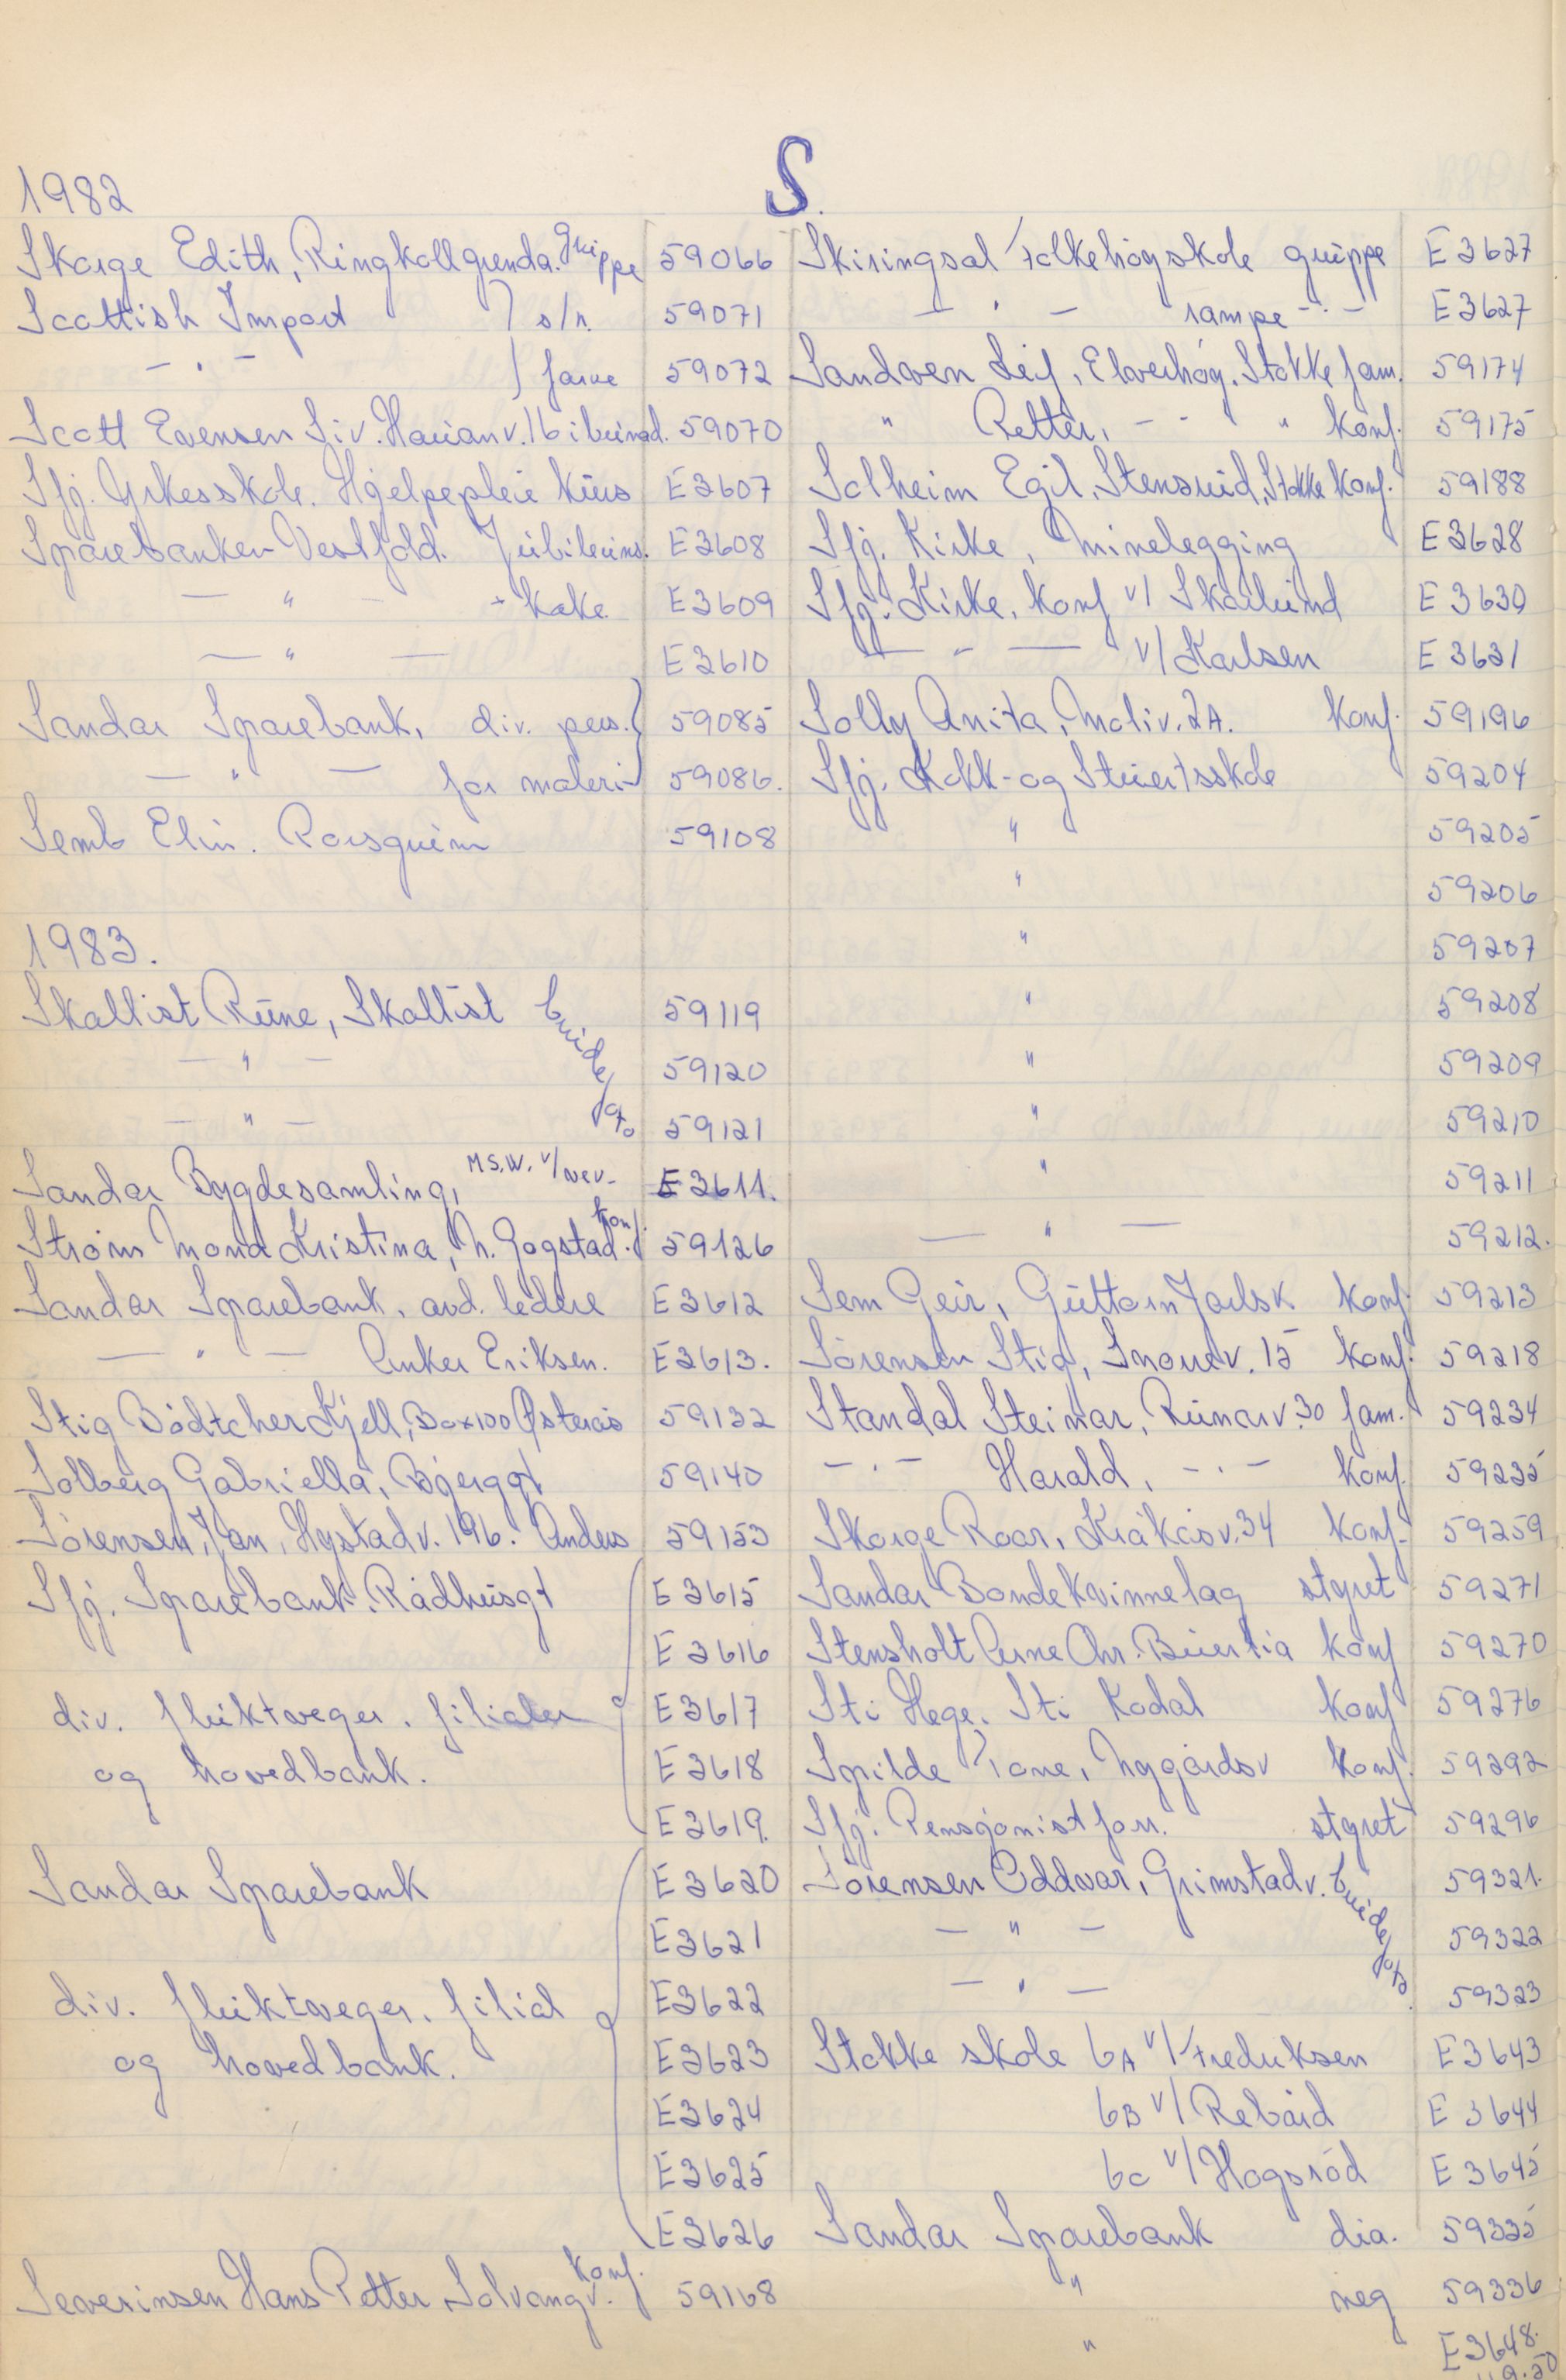 S.
1982
Skorge Edith, Ringkollgrenda. gruppe 59066
Scottish Import s/h. 59071
— " — farve 59072
Scott Evensen Siv. Hauanv. 16 i bunad. 59070
Sfj. Yrkesskole. Hjelpepleie kurs E3607
Sparebanken Vestfold. Jubileums. E3608
— " — + kake E3609
— " — E3610
Sandar Sparebank, div. pers. 59085
— " — for maleri 59086.
Semb Elin. Passguim 59108
1983.
Skallist Rune, Skallist Brude 59119
— " — foto 59120
— " — 59121
Sandar Bygdesamling, M.S.W. v/ver. E3611.
Strøm Mona Kristina, N. Gogstad. konf. 59126
Sandar Sparebank, avd. ledere E3612
— " — Anker Eriksen. E3613.
Stig Bødtcher Kjell, Box 100 Østerås 59132
Solberg Gabriella, Bjerggt 59140
Sørensen, Jan, Hystadv. 196. Anders 59153
Sfj. Sparebank. Rådhusgt E3615
E3616
div. fluktveger. filialer E3617
og hovedbank. E3618
E3619.
Sandar Sparebank E3620
E3621
div. fluktveger. filial E3622
og hovedbank. E3623
E3624
E3625
E3626
Severinsen Hans Petter Solvangv. konf. 59168
Skiringsal Folkehøgskole gruppe E3627
— " — rampe — " — E3627
Sandven Leif, Elverhøy. Stokke fam. 59174
" Petter, — " — " konf. 59175
Solheim Egil, Stensrud, Stokke konf. 59188
Sfj. Kirke, Minelegging E3628
Sfj. Kirke. konf v/ Skarlund E3630
— " — v/ Karlsen E3631
Solly Anita, Moliv. 2A. konf. 59196
Sfj. Kokk- og Stuertsskole 59204
" 59205
" 59206
" 59207
" 59208
" 59209
" 59210
" 59211
— " — 59212.
Sem Geir, Guttorm Jarlsk konf. 59213
Sørensen Stig, Snorrev. 15 konf. 59218
Standal Steinar, Runarv. 30 fam. 59234
— " — Harald, — " — konf. 59235
Skorge Roar, Kråkåsv. 34 konf. 59259
Sandar Bondekvinnelag styret 59271
Stensholt Arne Chr. Buerlia konf 59270
Sti Hege. Sti Kodal konf 59276
Spilde Tone, Nygårdsv konf. 59292
Sfj. Pensjonist forr. styret 59296
Sørensen Oddvar, Grimstadv. Brude 59321.
— " — foto 59322
— " — 59323
Stokke skole 6A v/ Fredriksen E3643
6B v/ Rebård E3644
6c v/ Hogsrød E3645
Sandar Sparebank dia. 59335
" neg 59336
" E3648.